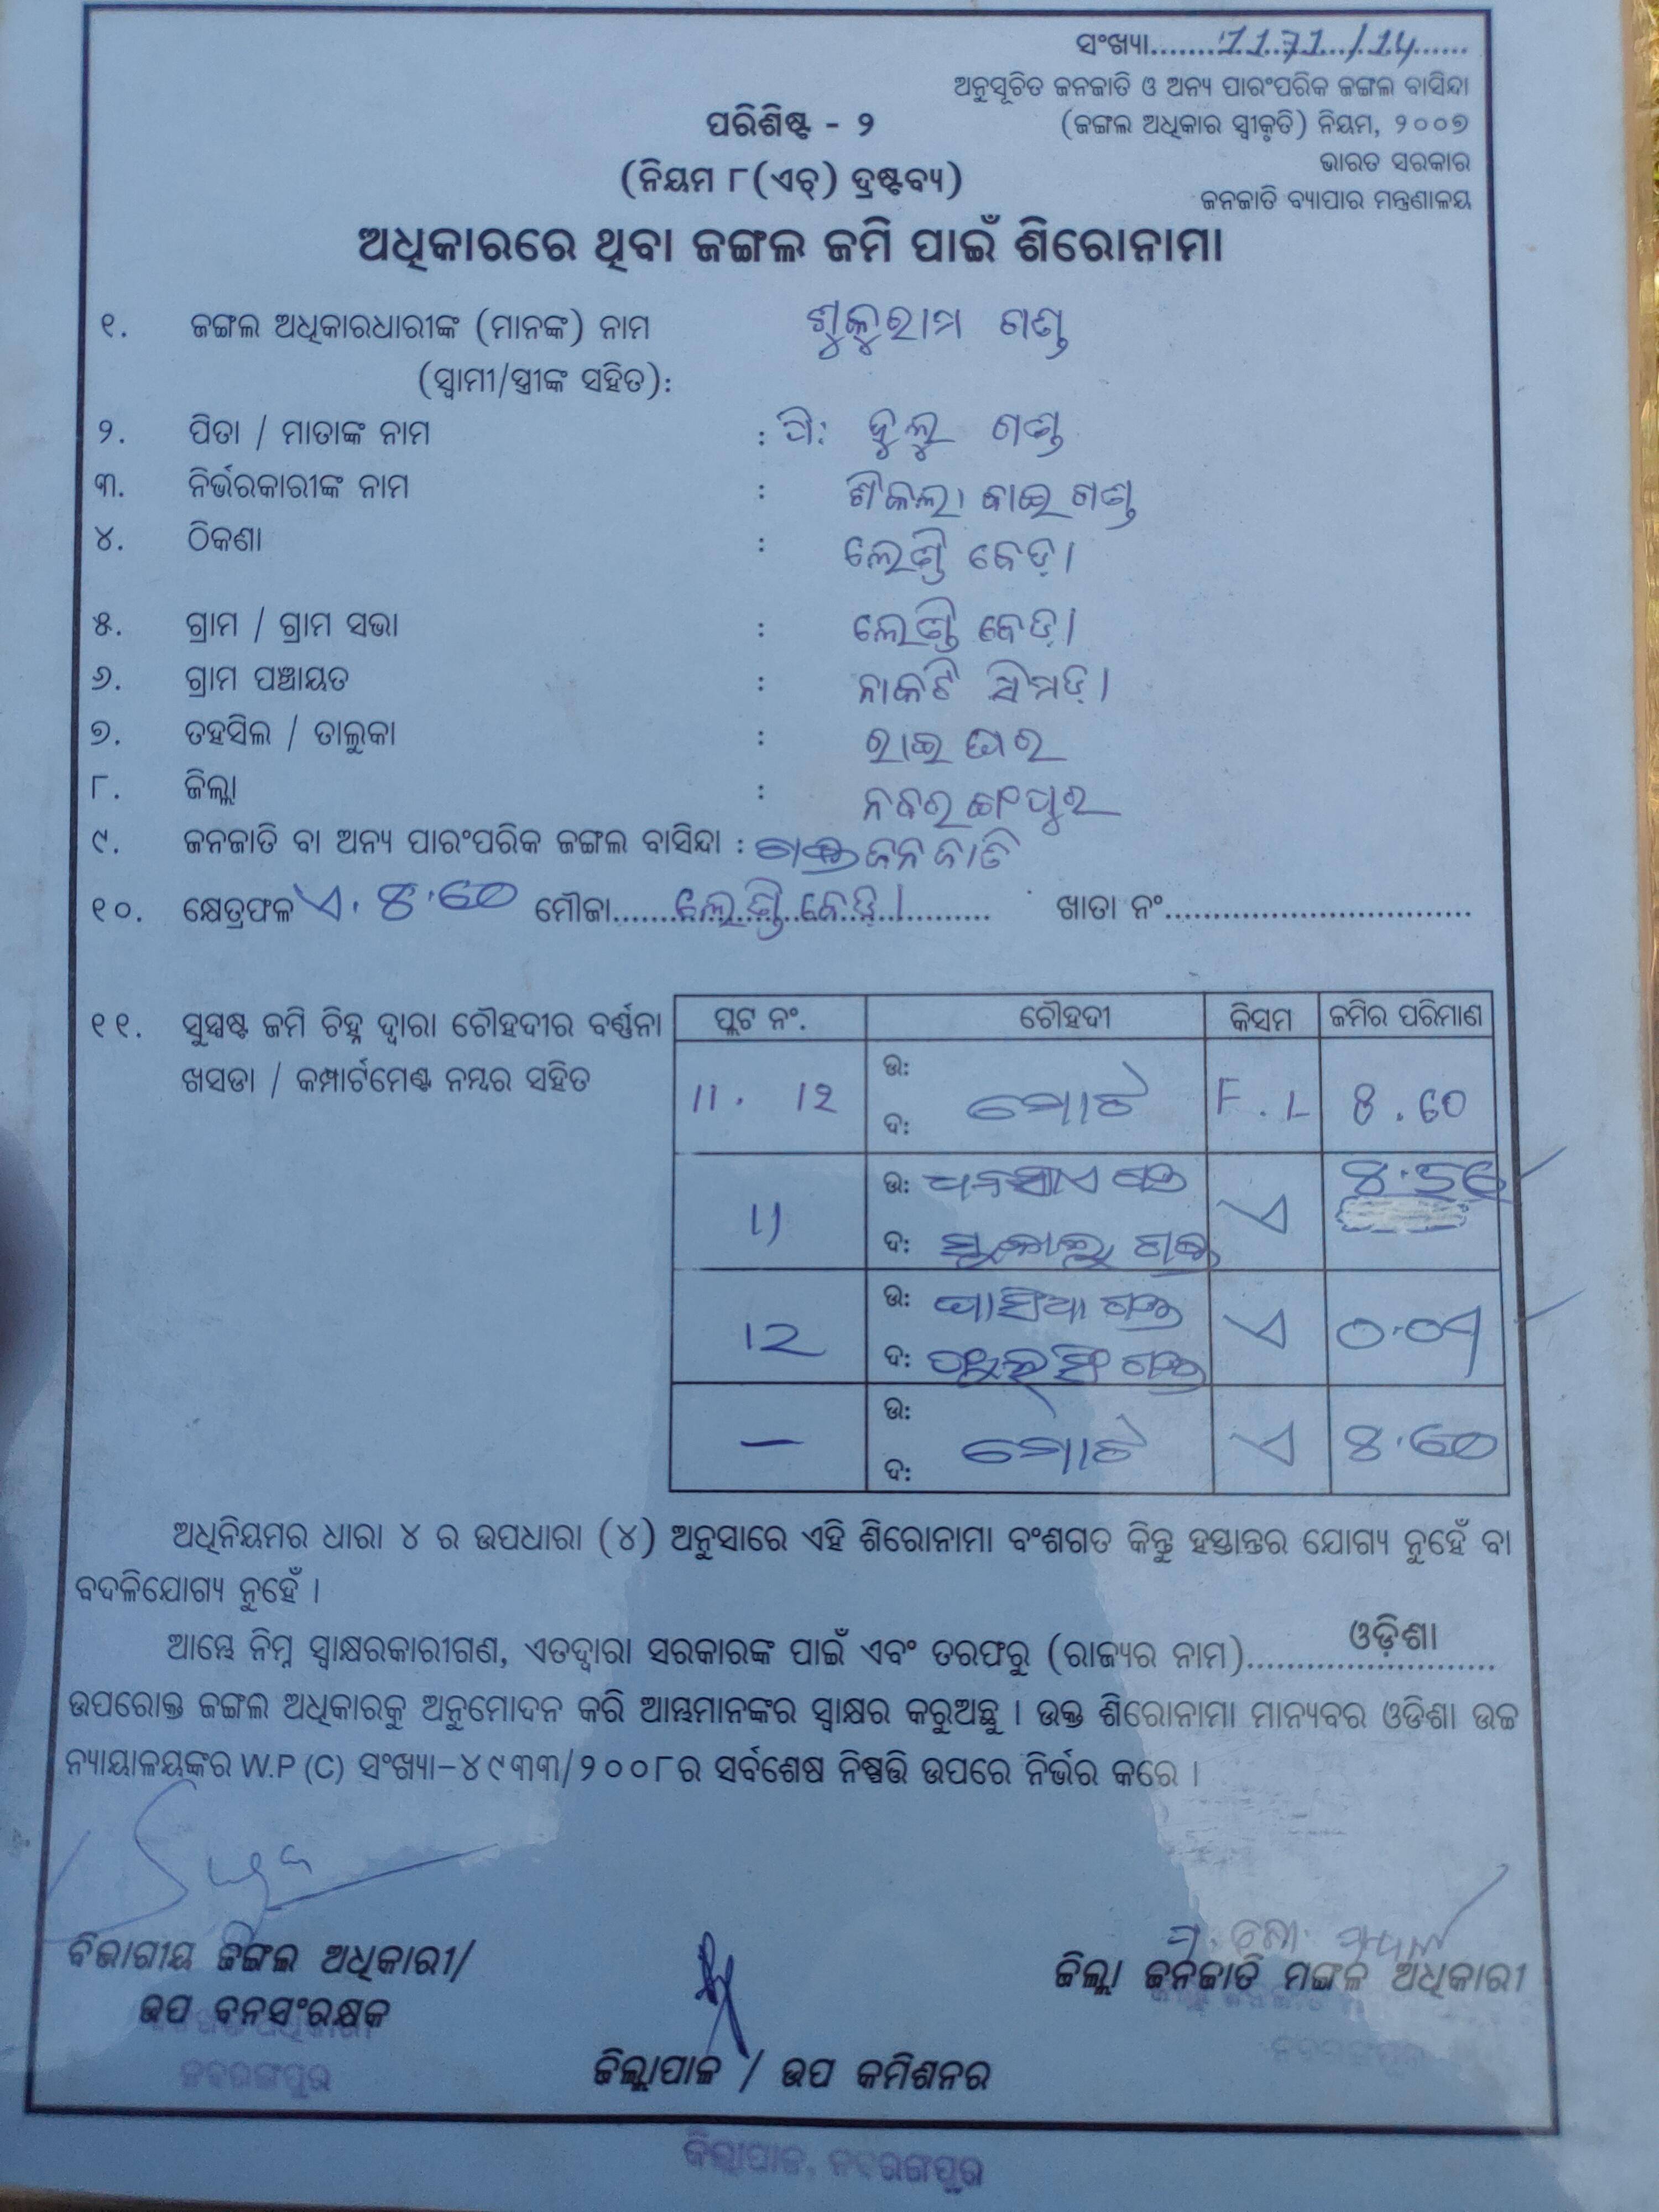 ସଂଖ୍ୟା.......1171/14......
ଅନୁସୂଚିତ ଜନଜାତି ଓ ଅନ୍ୟ ପାରଂପରିକ ଜଙ୍ଗଲ ବାସିନ୍ଦା
(ଜଙ୍ଗଲ ଅଧିକାର ସ୍ୱୀକୃତି) ନିୟମ, ୨୦୦୭
ଭାରତ ସରକାର
ଜନଜାତି ବ୍ୟାପାର ମନ୍ତ୍ରଣାଳୟ
ପରିଶିଷ୍ଟ - ୨
(ନିୟମ ୮(ଏଚ୍) ଦ୍ରଷ୍ଟବ୍ୟ)
ଅଧିକାରରେ ଥିବା ଜଙ୍ଗଲ ଜମି ପାଇଁ ଶିରୋନାମା
୧. ଜଙ୍ଗଲ ଅଧିକାରଧାରୀଙ୍କ (ମାନଙ୍କ) ନାମ ଶୁକୁରାମ ଗଣ୍ଡ
(ସ୍ୱାମୀ/ସ୍ତ୍ରୀଙ୍କ ସହିତ):
୨. ପିତା / ମାତାଙ୍କ ନାମ : ପି: ଦୁଲୁ ଗଣ୍ଡ
୩. ନିର୍ଭରକାରୀଙ୍କ ନାମ : ବାଇ ଗଣ୍ଡ
୪. ଠିକଣା : ଲେଣ୍ଡି ବେଡ଼ା
୫. ଗ୍ରାମ / ଗ୍ରାମ ସଭା : ଲେଣ୍ଡି ବେଡ଼ା
୬. ଗ୍ରାମ ପଞ୍ଚାୟତ : ନାକଟି ସିମଡ଼ା
୭. ତହସିଲ / ତାଲୁକା : ରାଇଘର
୮. ଜିଲ୍ଲା : ନବରଙ୍ଗପୁର
୯. ଜନଜାତି ବା ଅନ୍ୟ ପାରଂପରିକ ଜଙ୍ଗଲ ବାସିନ୍ଦା : ଗଣ୍ଡ ଜନଜାତି
୧୦. କ୍ଷେତ୍ରଫଳ ଏ. ୪.୬୦ ମୌଜା.......ଲେଣ୍ଡି ବେଡ଼ା....... ଖାତା ନଂ................................
୧୧. ସୁସ୍ପଷ୍ଟ ଜମି ଚିହ୍ନ ଦ୍ୱାରା ଚୌହଦୀର ବର୍ଣ୍ଣନା
ଖସଡା / କମ୍ପାର୍ଟମେଣ୍ଟ ନମ୍ବର ସହିତ
ପ୍ଲଟ ନଂ. ଚୌହଦୀ କିସମ ଜମିର ପରିମାଣ
ଉ:
11. 12 ମୋଟ F.L ୪.୬୦
ଦ:
ଉ: ଧନସାଏ ଗଣ୍ଡ ୪.୫୬
11 ଏ
ଦ: ଗଣ୍ଡ
ଉ: ଘାସିଆ ଗଣ୍ଡ
12 ଏ ୦.୦୪
ଦ: ଫୁଲସିଂ ଗଣ୍ଡ
ଉ:
— ମୋଟ ଏ ୪.୬୦
ଦ:
ଅଧିନିୟମର ଧାରା ୪ ର ଉପଧାରା (୪) ଅନୁସାରେ ଏହି ଶିରୋନାମା ବଂଶଗତ କିନ୍ତୁ ହସ୍ତାନ୍ତର ଯୋଗ୍ୟ ନୁହେଁ ବା
ବଦଳିଯୋଗ୍ୟ ନୁହେଁ ।
ଆମ୍ଭେ ନିମ୍ନ ସ୍ୱାକ୍ଷରକାରୀଗଣ, ଏତଦ୍ୱାରା ସରକାରଙ୍କ ପାଇଁ ଏବଂ ତରଫରୁ (ରାଜ୍ୟର ନାମ).......ଓଡ଼ିଶା.......
ଉପରୋକ୍ତ ଜଙ୍ଗଲ ଅଧିକାରକୁ ଅନୁମୋଦନ କରି ଆମ୍ଭମାନଙ୍କର ସ୍ୱାକ୍ଷର କରୁଅଛୁ । ଉକ୍ତ ଶିରୋନାମା ମାନ୍ୟବର ଓଡିଶା ଉଚ୍ଚ
ନ୍ୟାୟାଳୟଙ୍କର W.P (C) ସଂଖ୍ୟା-୪୯୩୩/୨୦୦୮ର ସର୍ବଶେଷ ନିଷ୍ପତ୍ତି ଉପରେ ନିର୍ଭର କରେ ।
ବିଭାଗୀୟ ଜଙ୍ଗଲ ଅଧିକାରୀ/
ଉପ ବନସଂରକ୍ଷକ
ନବରଙ୍ଗପୁର
ଜିଲ୍ଲା ଜନଜାତି ମଙ୍ଗଳ ଅଧିକାରୀ
ନବରଙ୍ଗପୁର
ଜିଲ୍ଲାପାଳ / ଉପ କମିଶନର
ଜିଲ୍ଲାପାଳ, ନବରଙ୍ଗପୁର